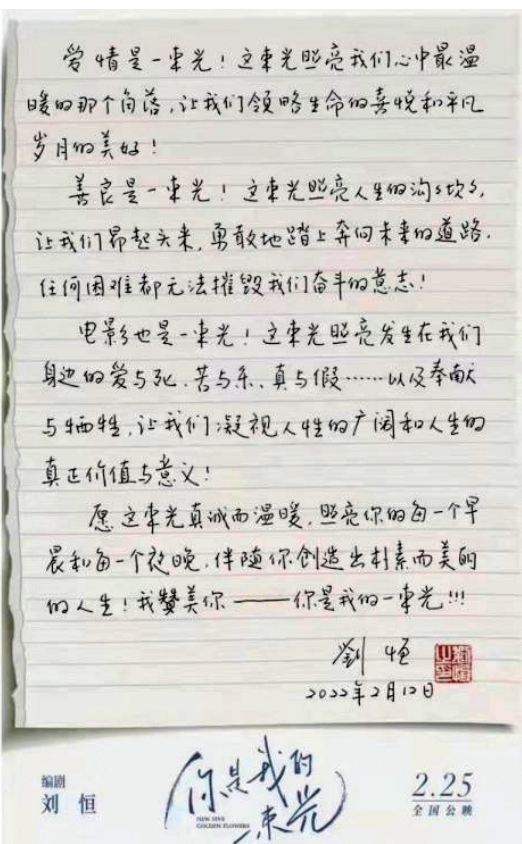 爱情是一束光！这束光照亮我们心中最温
暖的那个角落，让我们领略生命的喜悦和平凡
岁月的美好！
善良是一束光！这束光照亮人生的沟沟坎坎，
让我们昂起头来，勇敢地踏上奔向未来的道路．
任何困难都无法摧毁我们奋斗的意志！
电影也是一束光！这束光照亮发生在我们
身边的爱与死、苦与乐、真与假……以及奉献
与牺牲，让我们凝视人性的广阔和人生的
真正价值与意义！
愿这束光真诚而温暖，照亮你的每一个早
晨和每一个夜晚．伴随你创造出朴素而美的
的人生！我赞美你——你是我的一束光!!!
劉恒
2022年2月12日
编剧
刘恒
你是我的
一束光
NEW FIVE
GOLDEN FLOWERS
2.25
全国公映